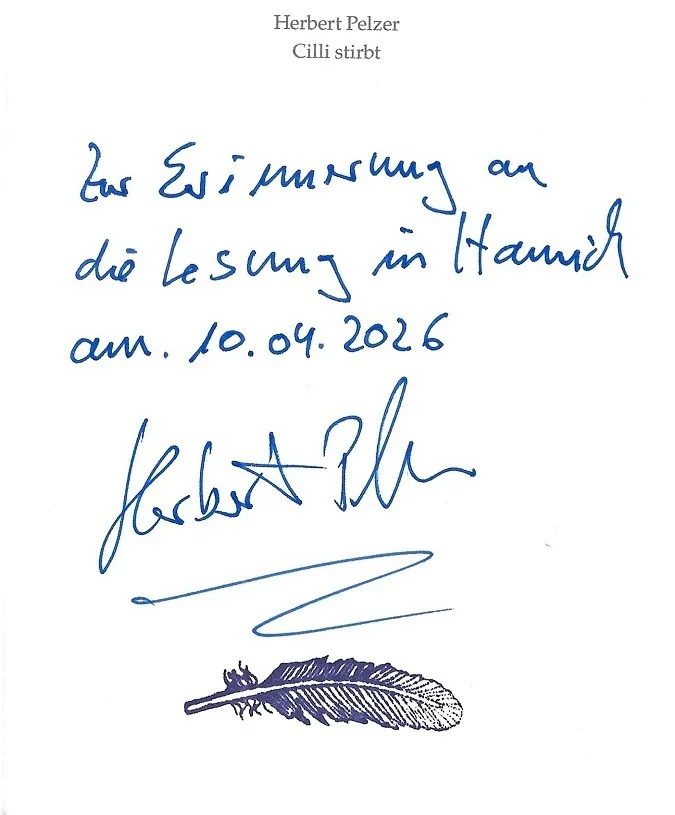 Herbert Pelzer
Cilli stirbt
Zur Erinnerung an
die Lesung in Hamich
am. 10.04.2026
Herbert Pelzer